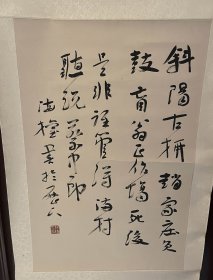 斜陽古柳趙家莊負
鼓盲翁正作場死後
是非誰管得滿村
聽說蔡中郎